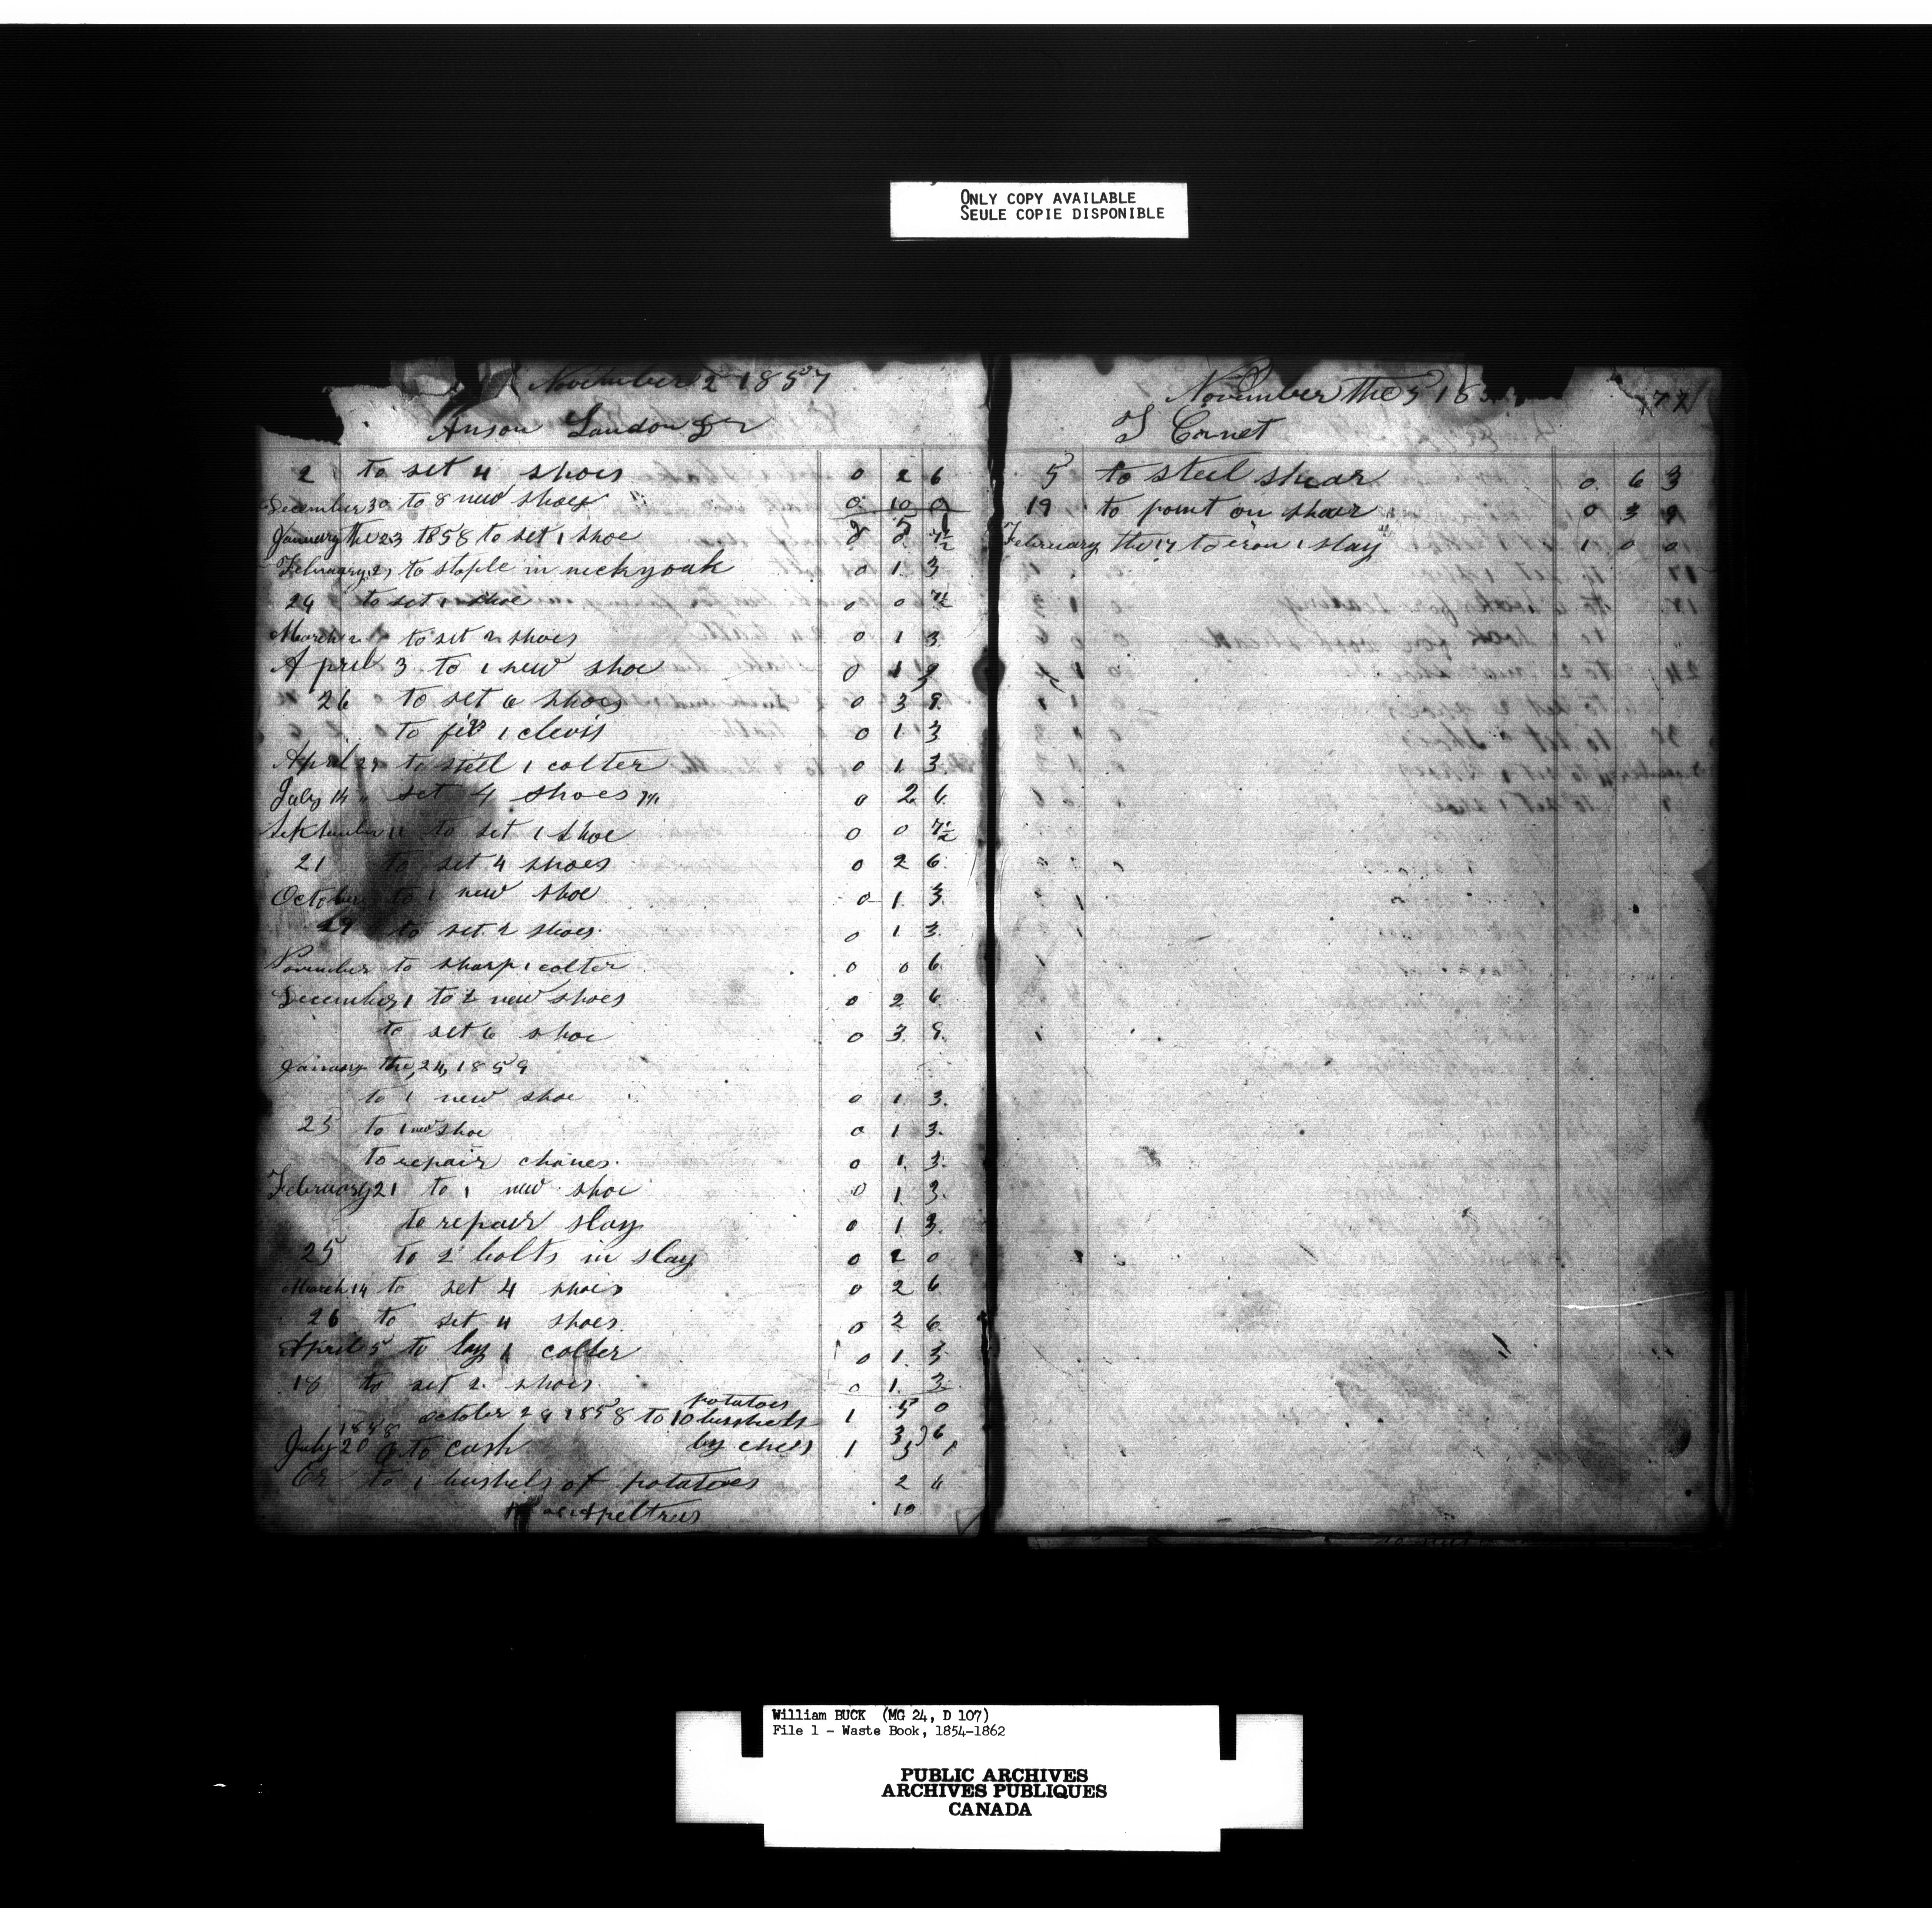 ONLY COPY AVAILABLE
SEULE COPIE DISPONIBLE
November 2 1857
Anson Landon Dr
2 to set 4 shoes 0 2 6
December 30 to 8 new shoes 0 10 0
2 5 1
January the 23 1858 to set 1 shoe 0 0 7½
February 2, to staple in neckyoak 0 1 3
24 to set 1 shoe 0 0 7½
March 2 to set 2 shoes 0 1 3
April 3 to 1 new shoe 0 1 3
26 to set 6 shoes 0 3 9
to fix 1 clevis 0 1 3
April 29 to steel 1 colter 0 1 3
July 14 " set 4 shoes 0 2 6
September 11 to set 1 shoe 0 0 7½
21 to set 4 shoes 0 2 6
October to 1 new shoe 0 1 3
29 to set 2 shoes 0 1 3
November to sharp 1 colter 0 0 6
December 1 to 2 new shoes 0 2 6
to set 6 shoe 0 3 9
January the 24, 1859
to 1 new shoe 0 1 3
25 to 1 new shoe 0 1 3
to repair chanes 0 1 3
February 21 to 1 new shoe 0 1 3
to repair slay 0 1 3
25 to 2 bolts in slay 0 2 0
March 14 to set 4 shoes 0 2 6
26 to set 4 shoes 0 2 6
April 5 to lay 1 colter 0 1 3
18 to set 2 shoes 0 1 3
potatoes
october 29 1858 to 10 busshels 1 5 0
1858
July 20 to cash by 1 3
Cr to 1 bushels of potatoes 2 6
10
November the 5 18
77
T Cornet
5 to steel shear 0 6 3
19 to point on shear 0 3 9
February the 17 to eron 1 slay 1 0 0
William BUCK (MG 24, D 107)
File 1 - Waste Book, 1854-1862
PUBLIC ARCHIVES
ARCHIVES PUBLIQUES
CANADA